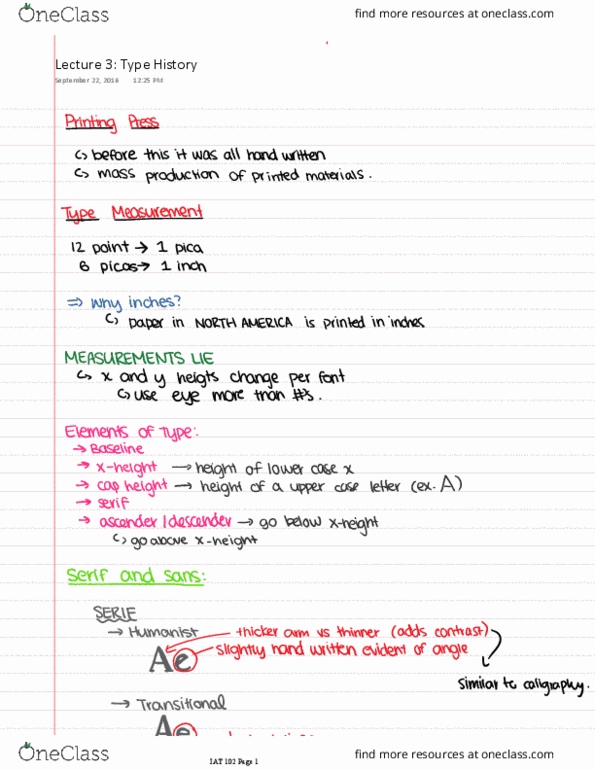 OneClass
find more resources at oneclass.com
Lecture 3: Type History
September 22, 2016 12:25 PM
Printing Press
before this it was all hand written
mass production of printed materials.
Type Measurement
12 point → 1 pica
6 picas → 1 inch
⇒ Why inches?
paper in NORTH AMERICA is printed in inches
MEASUREMENTS LIE
x and y heigts change per font
use eye more than #'s.
Elements of Type:
→ Baseline
→ x-height → height of lower case x
→ cap height → height of a upper case letter (ex. A)
→ serif
→ ascender/descender → go below x-height
go above x-height
Serif and sans:
SERIF
→ Humanist thicker arm vs thinner (adds contrast)
Ae slightly hand written evident of angle
similar to caligraphy.
→ Transitional
Ae
OneClass
IAT 102 Page 1
find more resources at oneclass.com